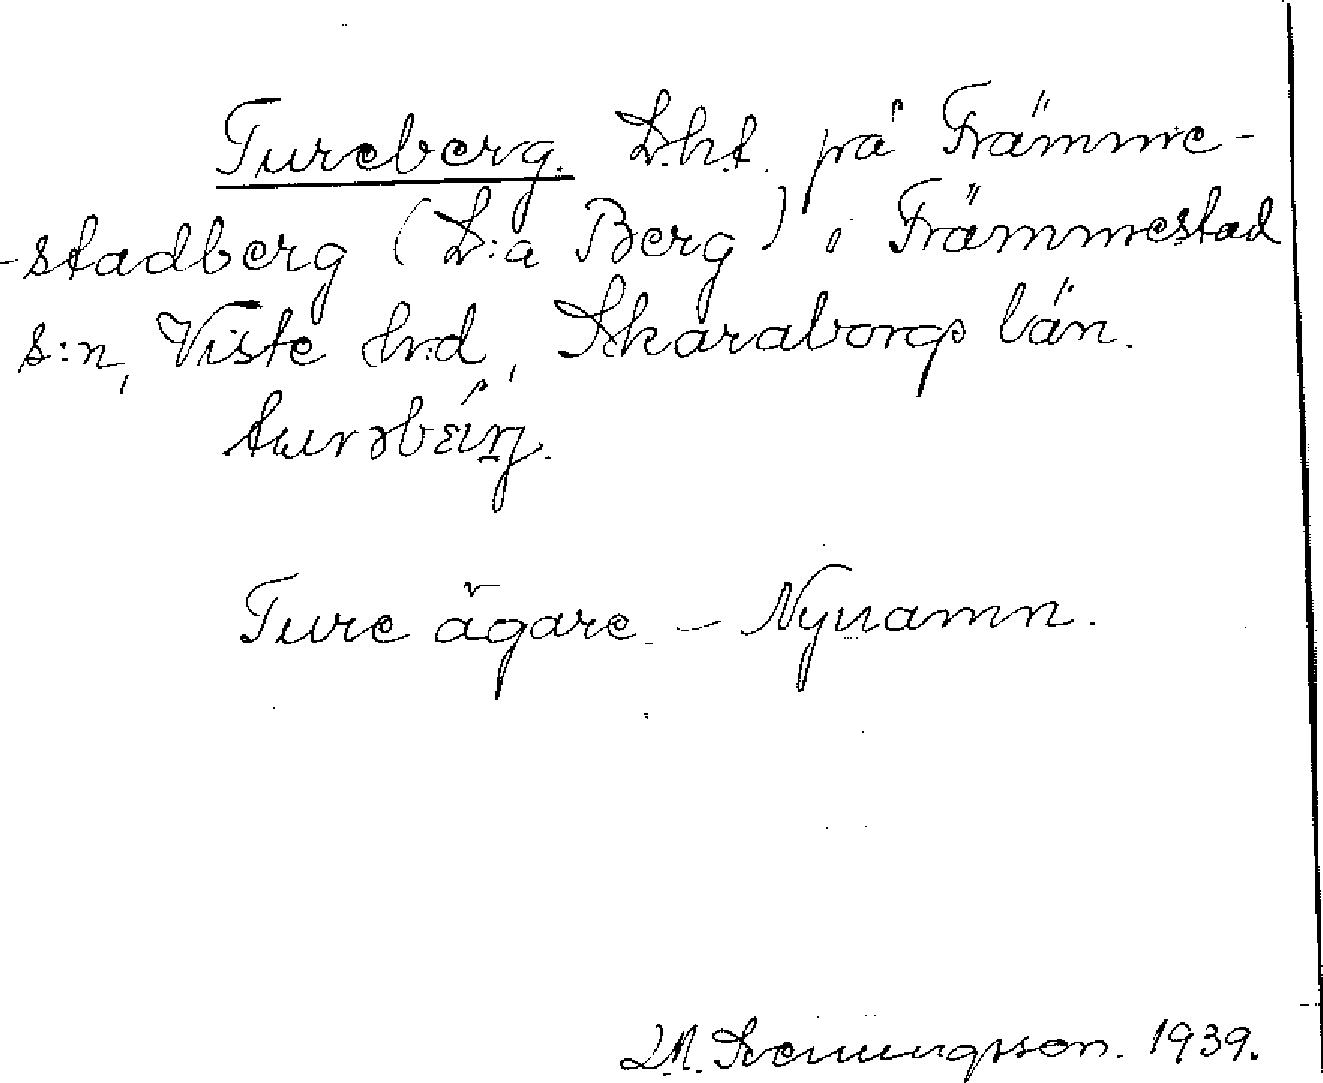 Tureberg. L.h.t. på Främme-
-stadberg (L:a Berg) i Främmestad
s:n, Viste hrd, Skaraborgs län.
Ture ägare. – Nynamn.
1939.